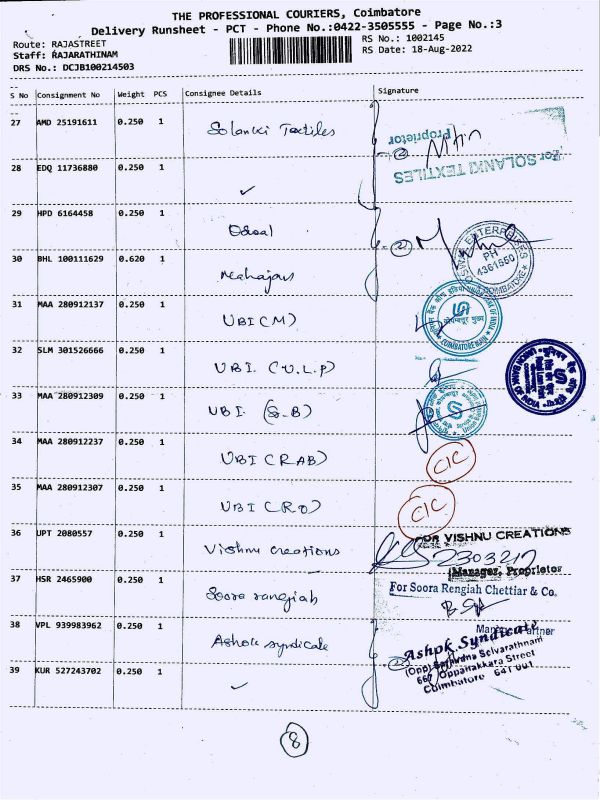 THE PROFESSIONAL COURIERS, Coimbatore
Delivery Runsheet - PCT - Phone No.:0422-3505555 - Page No.:3
Route: RAJASTREET
RS No.: 1002145
Staff: RAJARATHINAM
RS Date: 18-Aug-2022
DRS No.: DCJB100214503
S No Consignment No Weight PCS Consignee Details Signature
27 AMD 25191611 0.250 1 Solanki Textiles
Proprietor
For SOLANKI TEXTILES
28 EDQ 11736880 0.250 1 ✓
29 HPD 6164458 0.250 1
ENTERPRISES
PH
4361550
COIMBATORE
30 BHL 100111629 0.620 1 Mahajans
31 MAA 280912137 0.250 1 UBI (M)
COIMBATORE MAIN
32 SLM 301526666 0.250 1 UBI (U.L.P)
33 MAA 280912309 0.250 1 UBI (S.B)
34 MAA 280912237 0.250 1 UBI (RAB) CIC
35 MAA 280912307 0.250 1 UBI (RO) CIC
36 UPT 2080557 0.250 1 Vishnu Creations
FOR VISHNU CREATIONS
2303217
Manager, Proprietor
37 HSR 2465900 0.250 1 Soora rangiah
For Soora Rengiah Chettiar & Co.
38 VPL 939983962 0.250 1 Ashok syndicate
Ashok Syndicate
667 Oppanakkara Street
Coimbatore 641 001
39 KUR 527243702 0.250 1 ✓
8